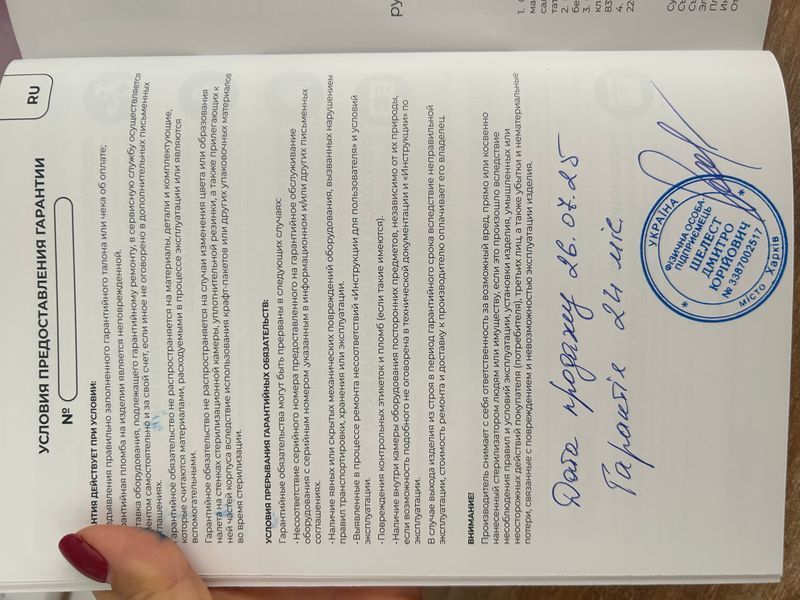 RU
УСЛОВИЯ ПРЕДОСТАВЛЕНИЯ ГАРАНТИИ
№
ДЕЙСТВУЕТ ПРИ УСЛОВИИ:
правильно заполненного гарантийного талона или чека об оплате;
пломба на изделии является неповрежденной.
оборудования, подлежащего гарантийному ремонту, в сервисную службу осуществляется
самостоятельно и за свой счет, если иное не оговорено в дополнительных письменных
Гарантийное обязательство не распространяется на материалы, детали и комплектующие,
которые считаются материалами, расходуемыми в процессе эксплуатации или являются
вспомогательными.
Гарантийное обязательство не распространяется на случаи изменения цвета или образования
налета на стенках стерилизационной камеры, уплотнительной резинки, а также прилегающих к
ней частей корпуса вследствие использования крафт-пакетов или других упаковочных материалов
во время стерилизации.
УСЛОВИЯ ПРЕРЫВАНИЯ ГАРАНТИЙНЫХ ОБЯЗАТЕЛЬСТВ:
Гарантийные обязательства могут быть прерваны в следующих случаях:
- Несоответствие серийного номера предоставленного на гарантийное обслуживание
оборудования с серийным номером, указанным в информационном и/или других письменных
соглашениях.
- Наличие явных или скрытых механических повреждений оборудования, вызванных нарушением
правил транспортировки, хранения или эксплуатации.
- Выявленные в процессе ремонта несоответствия «Инструкции для пользователя» и условий
эксплуатации.
- Повреждения контрольных этикеток и пломб (если такие имеются).
- Наличие внутри камеры оборудования посторонних предметов, независимо от их природы,
если возможность подобного не оговорена в технической документации и «Инструкции» по
эксплуатации.
В случае выхода изделия из строя в период гарантийного срока вследствие неправильной
эксплуатации, стоимость ремонта и доставку к производителю оплачивает его владелец.
ВНИМАНИЕ!
Производитель снимает с себя ответственность за возможный вред, прямо или косвенно
нанесенный стерилизатором людям или имуществу, если это произошло вследствие
несоблюдения правил и условий эксплуатации, установки изделия, умышленных или
неосторожных действий покупателя (потребителя), третьих лиц, а также убытки и нематериальные
потери, связанные с повреждением и невозможностью эксплуатации изделия.
Дата продажу 26.07.25
Гарантія 24 міс
УКРАЇНА
ФІЗИЧНА ОСОБА-
ПІДПРИЄМЕЦЬ
ШЕЛЕСТ
ДМИТРО
ЮРІЙОВИЧ
№ 3387002517
місто Харків